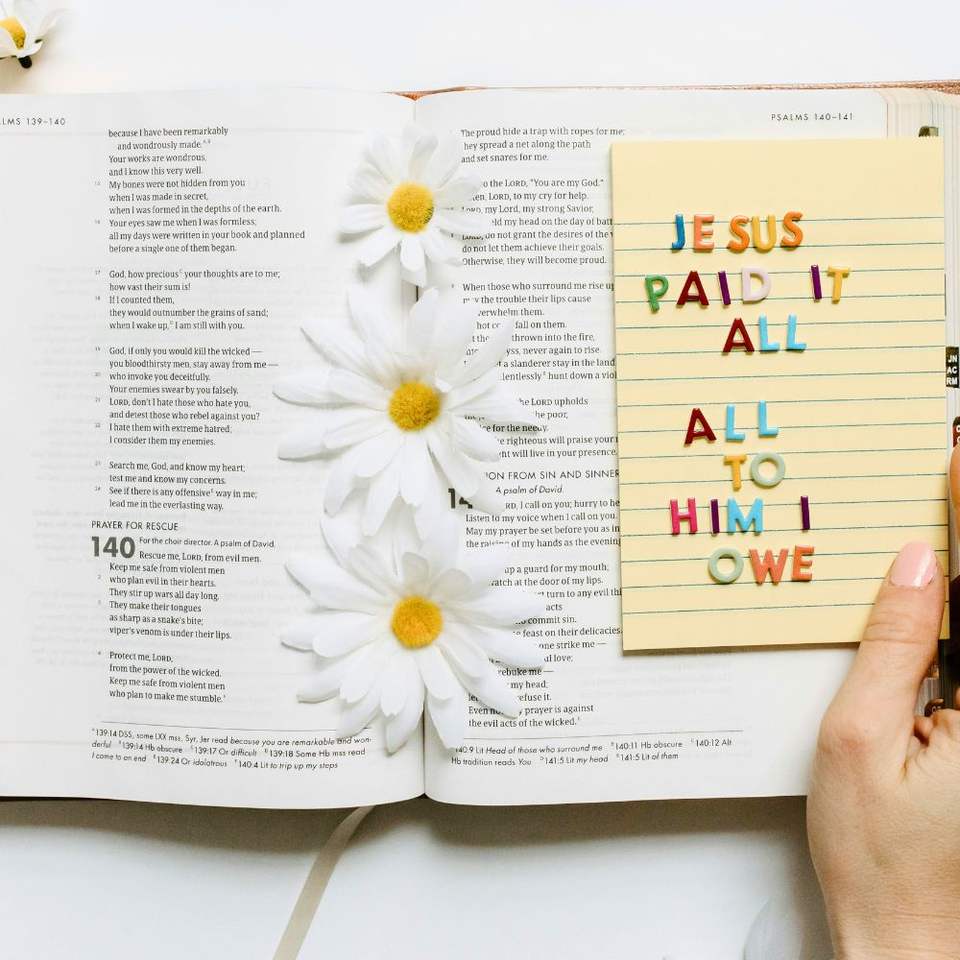 LMS 139–140
because I have been remarkably
and wondrously made.
Your works are wondrous,
and I know this very well.
My bones were not hidden from you
when I was made in secret,
when I was formed in the depths of the earth.
16 Your eyes saw me when I was formless;
all my days were written in your book and planned
before a single one of them began.
17 God, how precious your thoughts are to me;
how vast their sum is!
18 If I counted them,
they would outnumber the grains of sand;
when I wake up, I am still with you.
19 God, if only you would kill the wicked —
you bloodthirsty men, stay away from me —
20 who invoke you deceitfully.
Your enemies swear by you falsely.
21 LORD, don't I hate those who hate you,
and detest those who rebel against you?
22 I hate them with extreme hatred;
I consider them my enemies.
23 Search me, God, and know my heart;
test me and know my concerns.
24 See if there is any offensive way in me;
lead me in the everlasting way.
PRAYER FOR RESCUE
140 For the choir director. A psalm of David.
Rescue me, LORD, from evil men.
Keep me safe from violent men
2 who plan evil in their hearts.
They stir up wars all day long.
3 They make their tongues
as sharp as a snake's bite;
viper's venom is under their lips.
4 Protect me, LORD,
from the power of the wicked.
Keep me safe from violent men
who plan to make me stumble.
139:14 DSS, some LXX mss, Syr, Jer read because you are remarkable and won-
derful 139:14 Hb obscure 139:17 Or difficult 139:18 Some Hb mss read
I come to an end 139:24 Or idolatrous 140:4 Lit to trip up my steps
PSALMS 140–141
The proud hide a trap with ropes for me;
hey spread a net along the path
and set snares for me.
o the LORD, "You are my God."
en, LORD, to my cry for help.
LORD, my Lord, my strong Savior,
eld my head on the day of batt
LORD, do not grant the desires of the w
do not let them achieve their goals.
Otherwise, they will become proud.
When those who surround me rise up
may the trouble their lips cause
verwhelm them.
hot co fall on them.
thrown into the fire,
yss, never again to rise
t a slanderer stay in the land
lentlessly hunt down a viol
he LORD upholds
the poor,
ice for the needy.
e righteous will praise your
nt will live in your presence.
ON FROM SIN AND SINNER
14 A psalm of David.
RD, I call on you; hurry to he
Listen to my voice when I call on you.
May my prayer be set before you as in
the raising of my hands as the evening
up a guard for my mouth;
atch at the door of my lips.
t turn to any evil thi
acts
commit sin.
feast on their delicacies.
one strike me —
ul love;
rebuke me —
my head;
refuse it.
Even now my prayer is against
the evil acts of the wicked.
140:9 Lit Head of those who surround me 140:11 Hb obscure 140:12 Alt
Hb tradition reads You 141:5 Lit my head 141:5 Lit of them
JESUS
PAID IT
ALL
ALL
TO
HIM I
OWE
JN
AC
RM